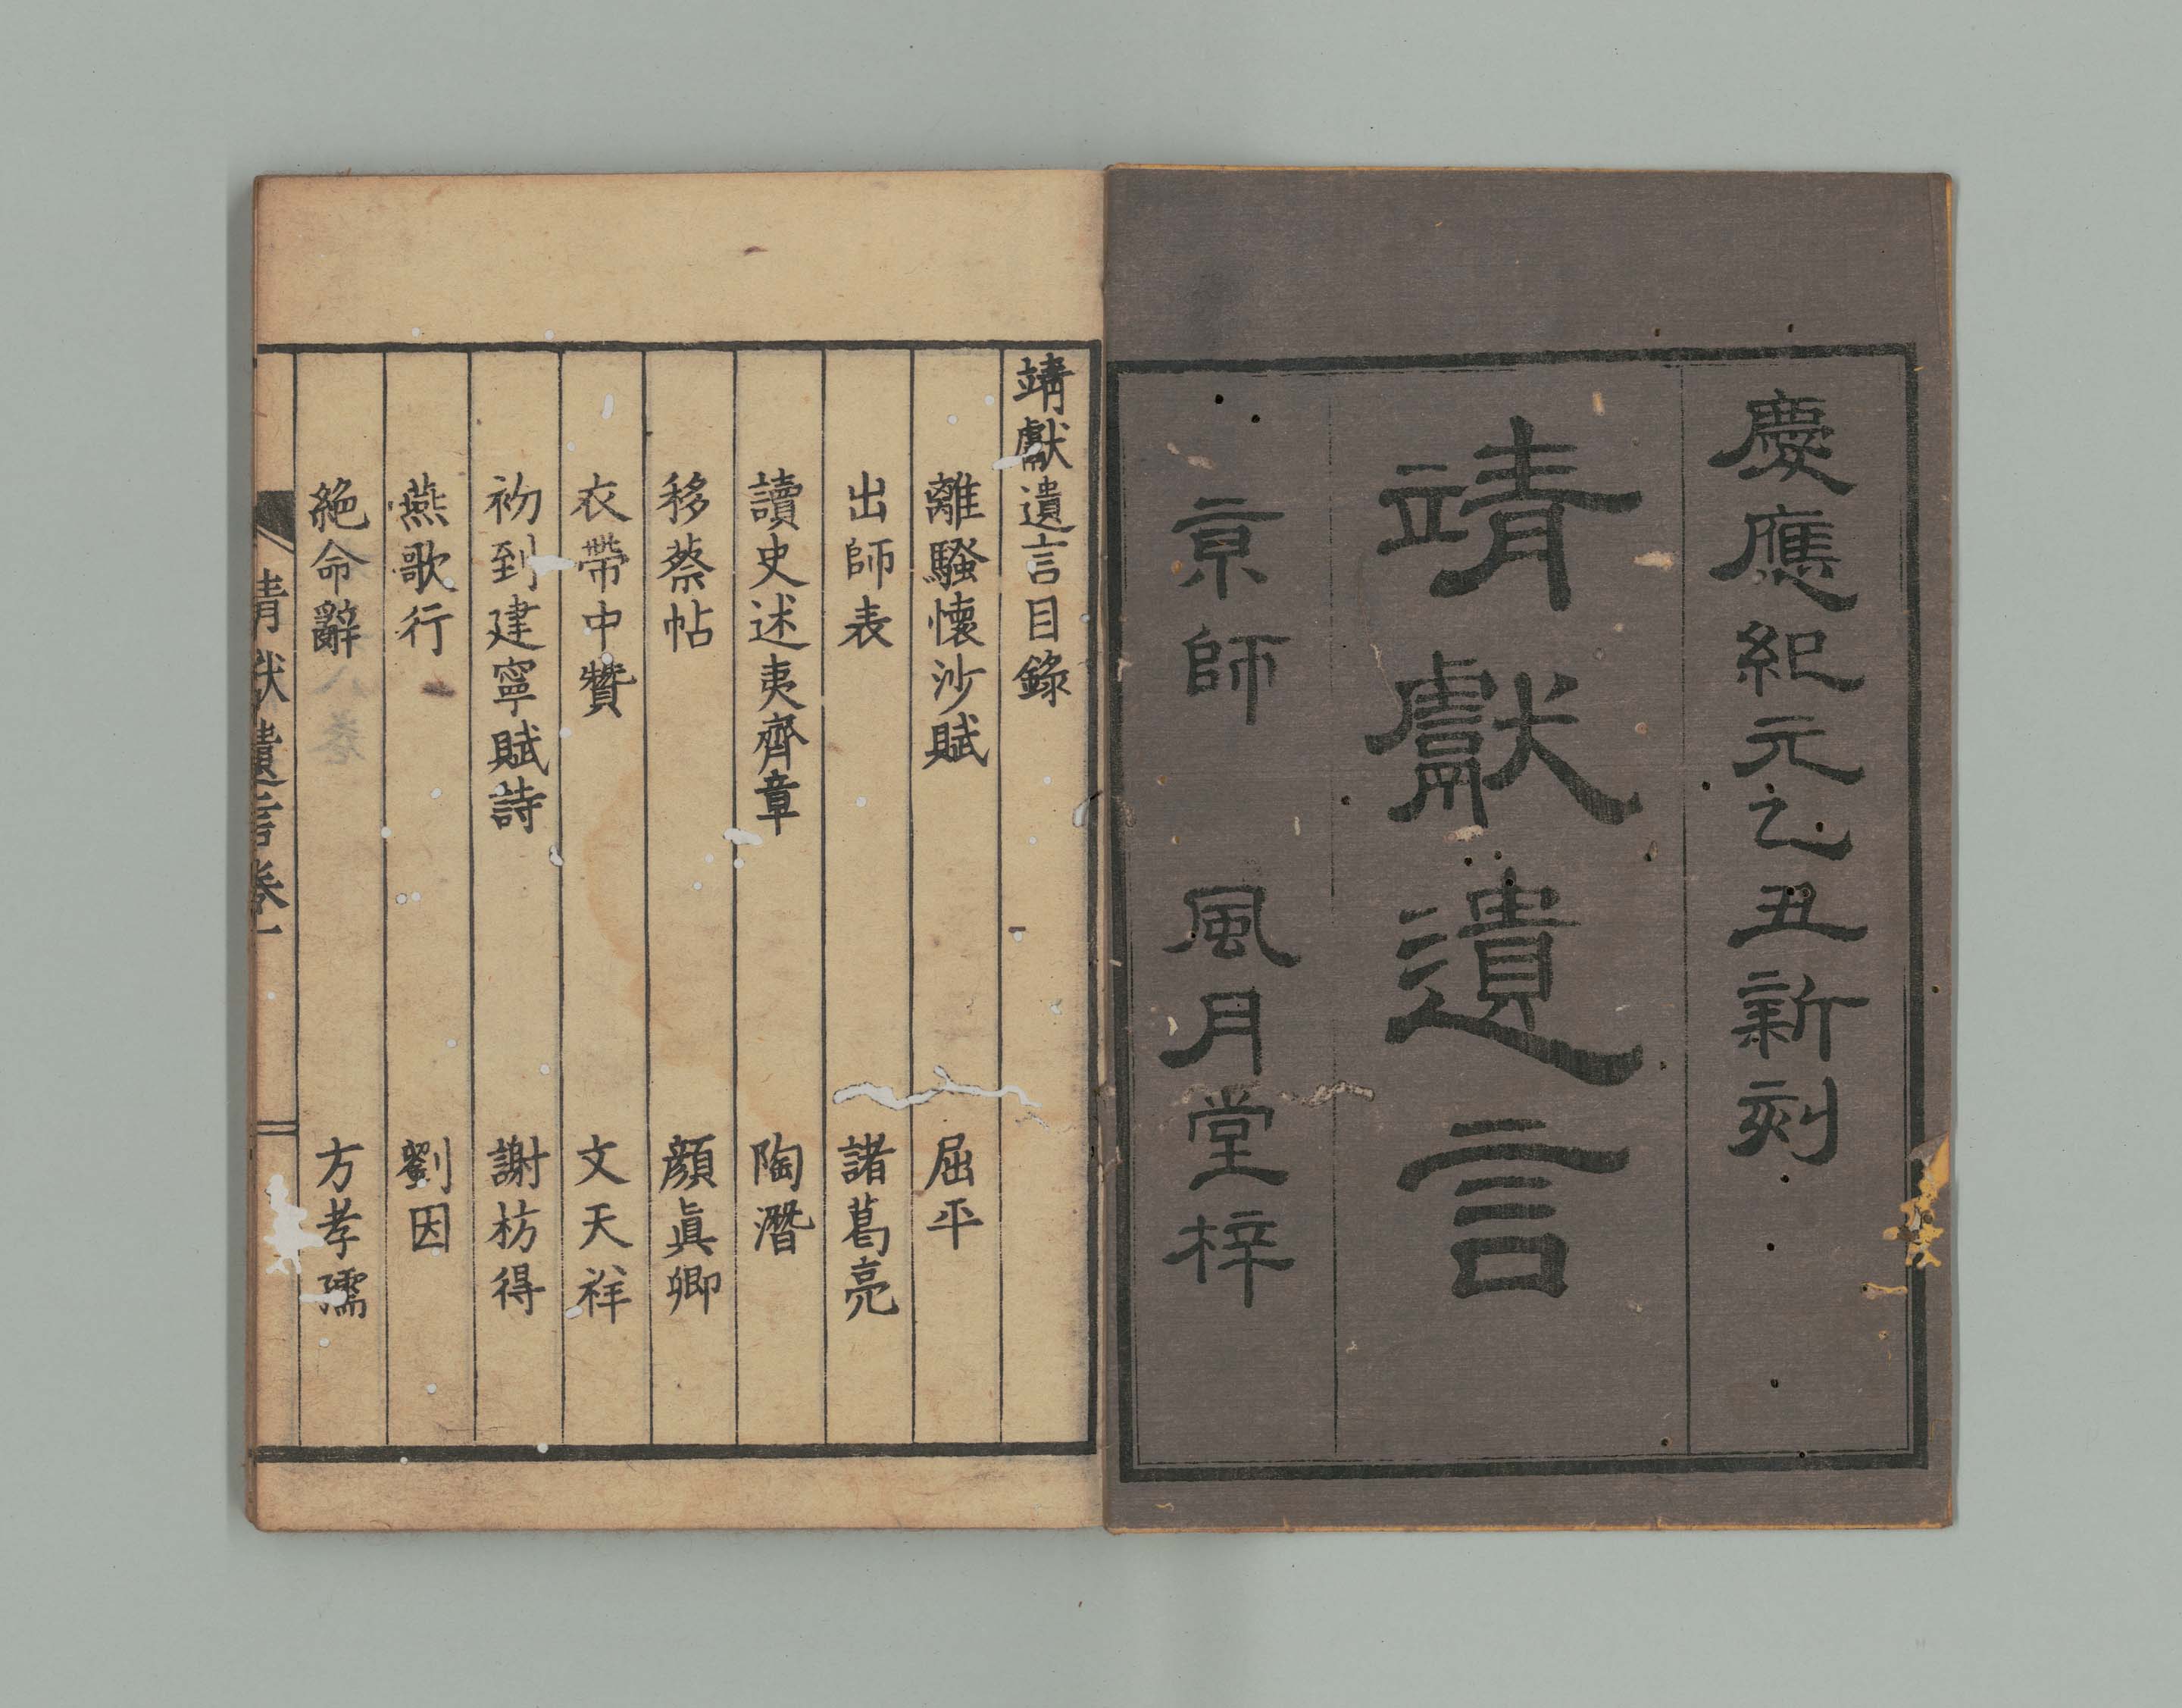 慶應紀元乙丑新刻
靖獻遺言
京師 風月堂梓
靖獻遺言目錄
離騷懷沙賦 屈平
出師表 諸葛亮
讀史述夷齊章 陶潛
移蔡帖 顏眞卿
衣帶中贊 文天祥
初到建寧賦詩 謝枋得
燕歌行 劉因
絕命辭 方孝孺
靖獻遺言卷一